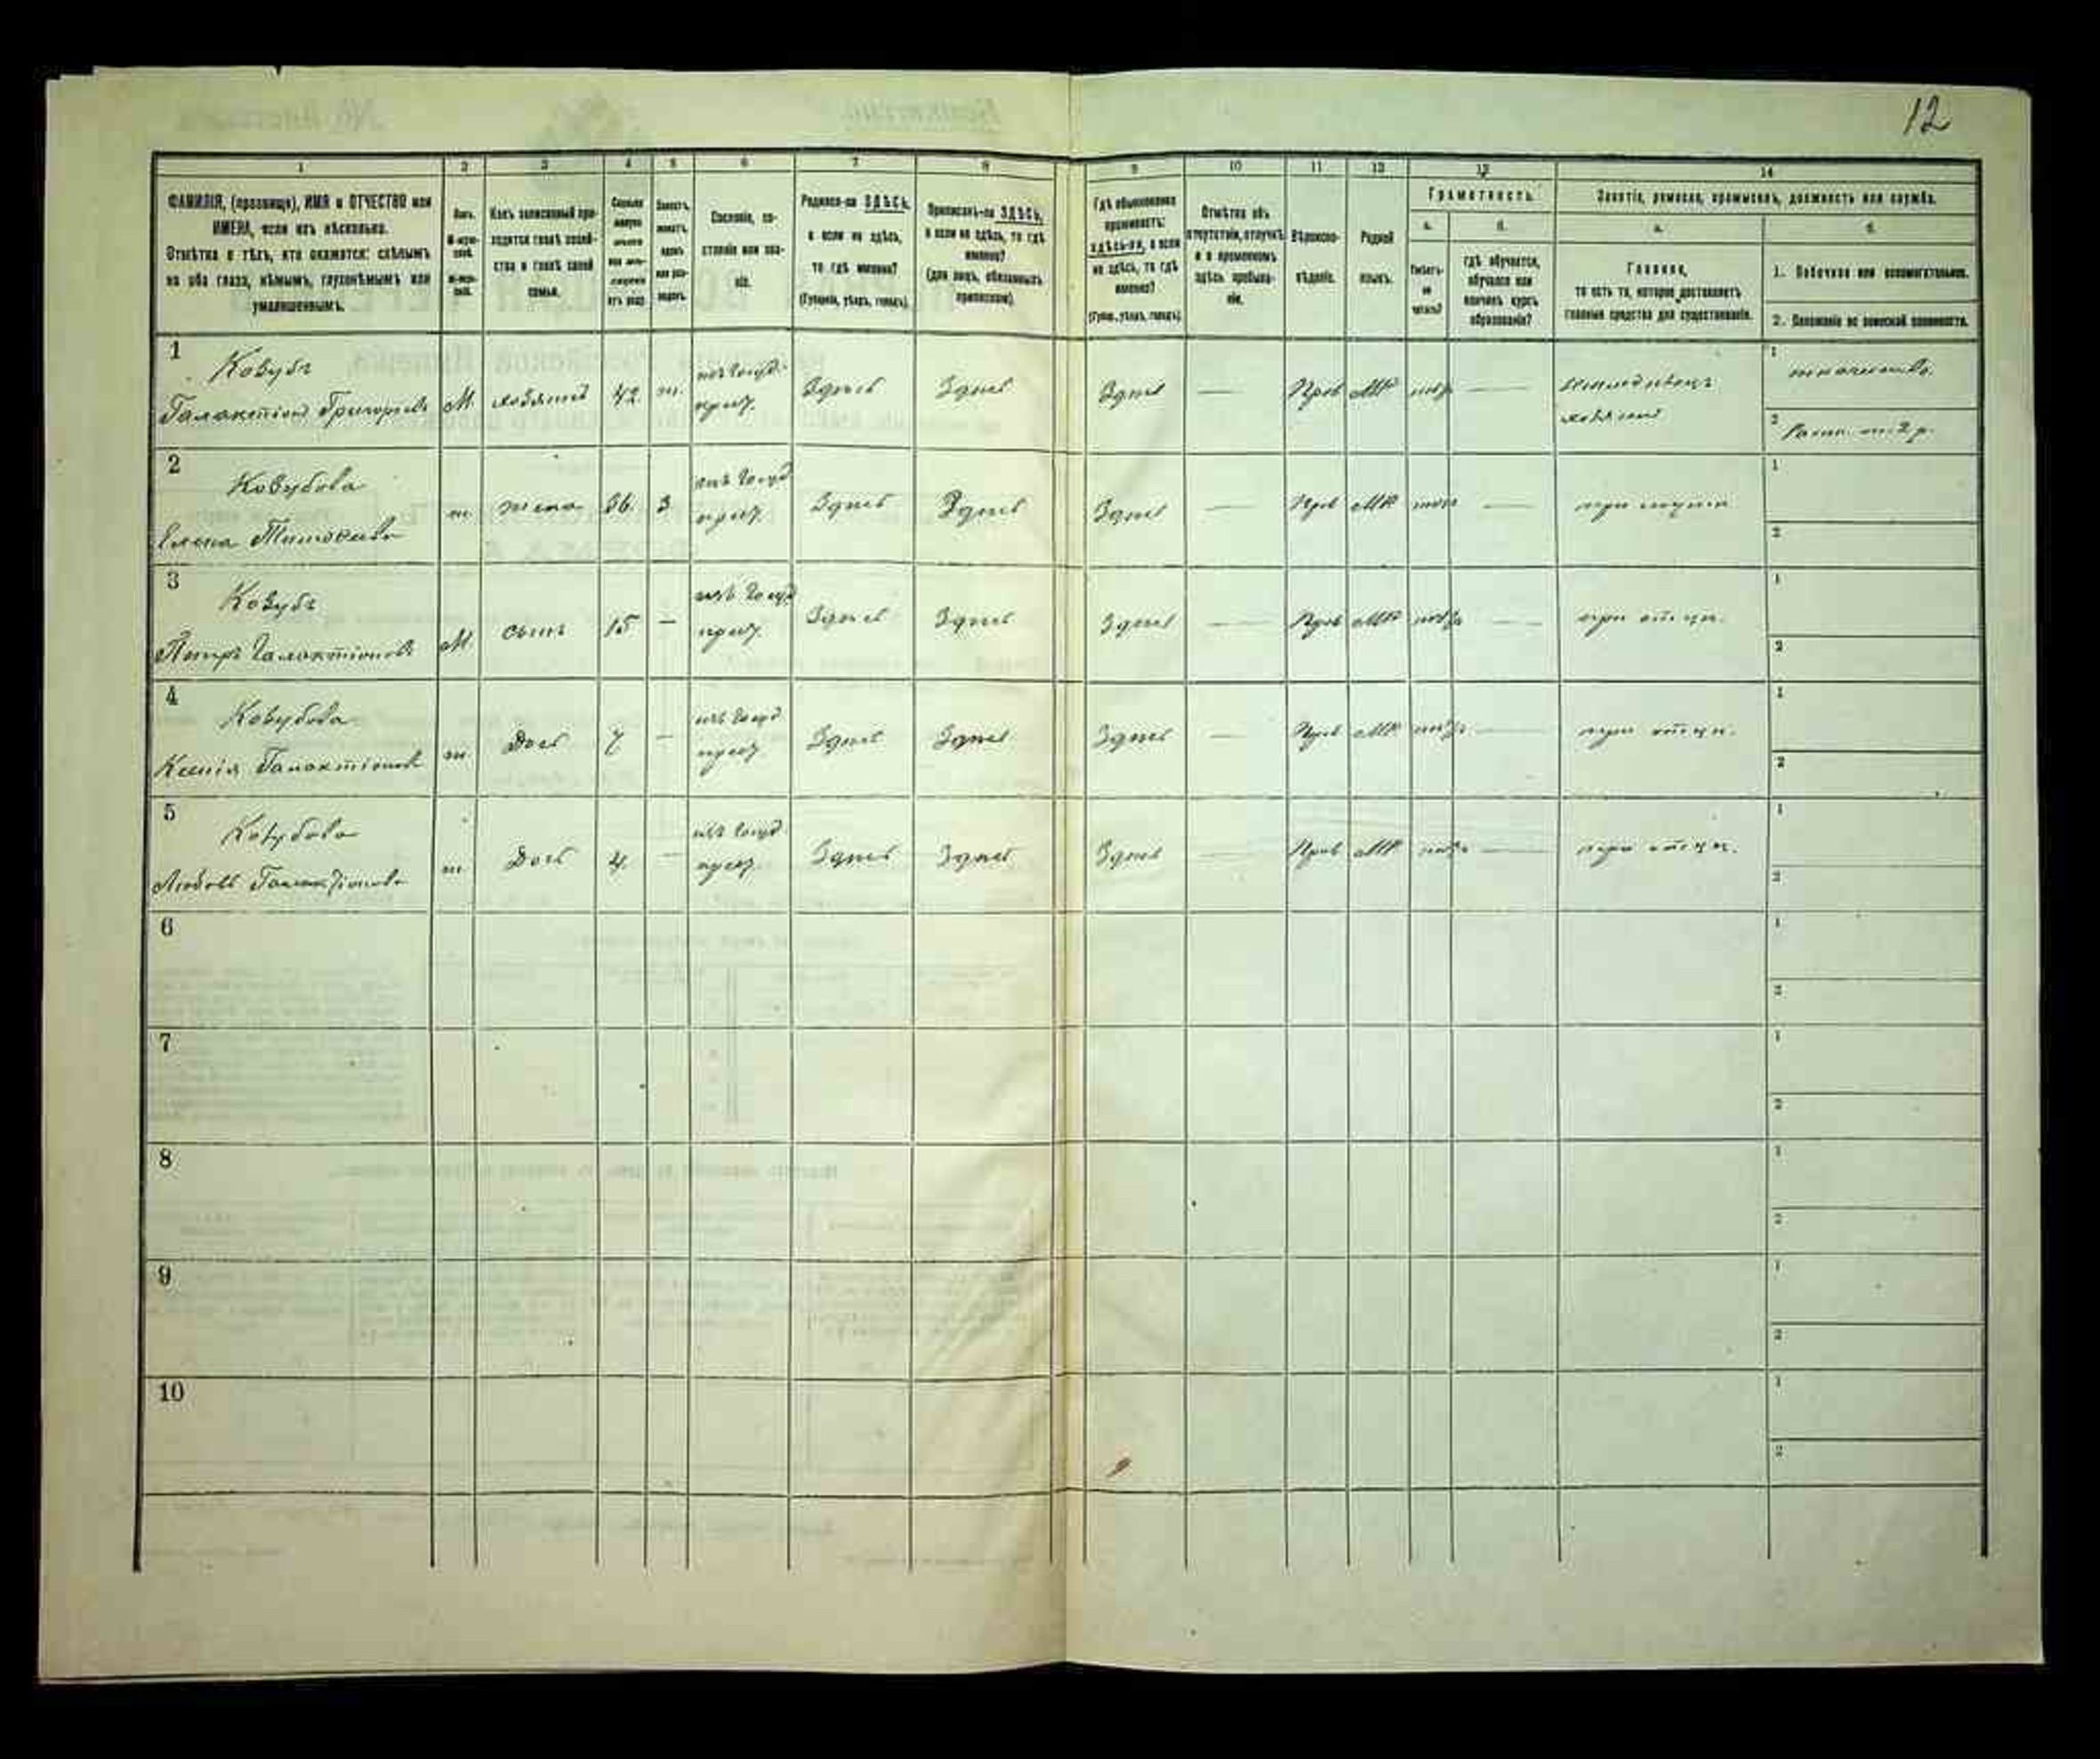 12
1 2 3 4 5 6 7 8 9 10 11 12 13 14
ФАМИЛІЯ, (прозвище), ИМЯ и ОТЧЕСТВО или
ИМЕНА, если ихъ нѣсколько.
Отмѣтка о тѣхъ, кто окажется: слѣпымъ
на оба глаза, нѣмымъ, глухонѣмымъ или
умалишеннымъ.
Полъ.
Какъ записанный при-
ходится главѣ хозяй-
ства и главѣ своей
семьи.
Сословіе, со-
стояніе или зва-
ніе.
Родился-ли ЗДѢСЬ,
а если не здѣсь,
то гдѣ именно?
(Губернія, уѣздъ, городъ).
Приписанъ-ли ЗДѢСЬ,
а если не здѣсь, то гдѣ
именно?
(для лицъ, обязанныхъ
припискою).
Гдѣ обыкновенно
проживаетъ:
здѣсь-ли, а если
не здѣсь, то гдѣ
именно?
(Губер., уѣздъ, городъ).
Отмѣтка объ
отсутствіи, отлучкѣ
и о временномъ
здѣсь пребыва-
ніи.
Вѣроиспо-
вѣданіе.
Родной
языкъ.
Грамотность.
а. б.
Умѣетъ-
ли
читать?
гдѣ обучается,
обучался или
кончилъ курсъ
образованія?
Занятіе, ремесло, промыселъ, должность или служба.
а. б.
Главное,
то есть то, которое доставляетъ
главныя средства для существованія.
1. Побочное или вспомогательное.
2. Положеніе по воинской повинности.
1
Козубъ
Галактіонъ Григорьевъ
М. хозяинъ 42 ж. изъ госуд. крест. Здѣсь Здѣсь Здѣсь — Прав МР негр —
земледѣлецъ
хозяинъ
1 ткачество.
2 Ратн. оп. 2 р.
2
Козубова
Елена
ж. жена 36. З. изъ госуд крест. Здѣсь Здѣсь Здѣсь — Прав МР негр — при мужѣ
1
2
3
Козубъ
Петръ Галактіоновъ
М. сынъ 15 — изъ госуд крест. Здѣсь Здѣсь Здѣсь — Прав МР негр — при отцѣ.
1
2
4
Козубова
Ксенія Галактіонов
ж. Дочь 7 — изъ госуд крест. Здѣсь Здѣсь Здѣсь — Прав МР негр — при отцѣ.
1
2
5
Козубова
Любовь Галактіонова
ж. Дочь 4. — изъ госуд. крест. Здѣсь Здѣсь Здѣсь — Прав МР негр — при отцѣ.
1
2
6
1
2
7
1
2
8
1
2
9
1
2
10
1
2